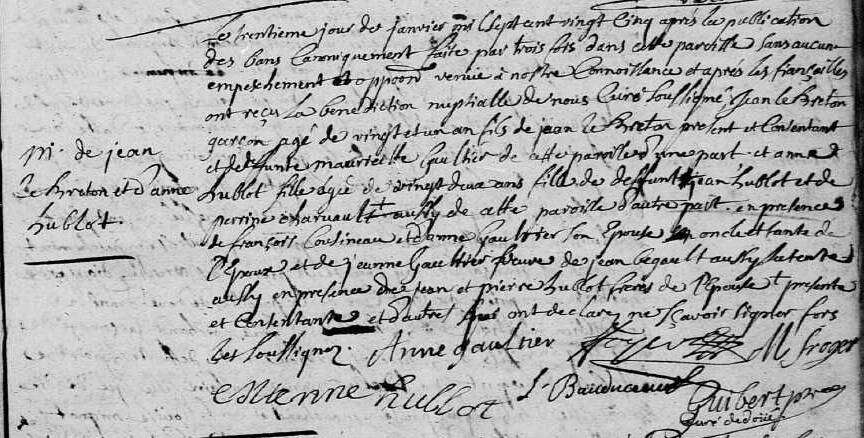 Le trentieme jour de janvier mil sept cent vingt cinq apres la publication
des bans canoniquement faite par trois fois dans cette paroisse sans aucun
empeschement et oppoon venue à nostre connoissance et après les fiançailles
ont reçu la benediction nuptialle de nous curé soussigné, jean le Breton
garçon agé de vingt et un an fils de jean le Breton present et consentant
et deffunte Gaultier de cette paroisse d'une part. et anne
hublot fille agée de vingt deux ans fille de deffunt jean hublot et de
perrine charuault + aussy de cette paroisse d'autre part. en presence
de françois Cousineau et d'anne Gaultier son Epouse oncle et tante de
l'Epoux et de jeanne Gaultier veuve de jean begault aussy sa tente
aussy en presence de jean et pierre hublot freres de l'Epouse + presente
et consentante et d'autres qui ont declarez ne sçavoir signer fors
les soussignez. Anne gaultier M froger
estienne hublot
Guibert ptre
curé de doué
M. de jean
le Breton et d'anne
hublot.